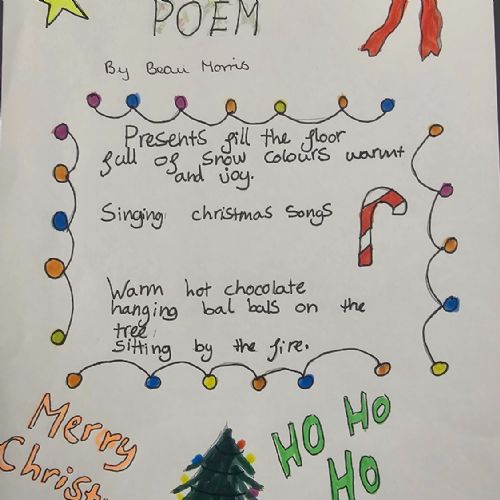 POEM
By Beau Morris
Presents fill the floor
full of snow colours warmt
and joy.
Singing christmas songs
Warm hot chocolate
hanging bal bals on the
tree.
Sitting by the fire.
Merry
Christ
HO HO
HO